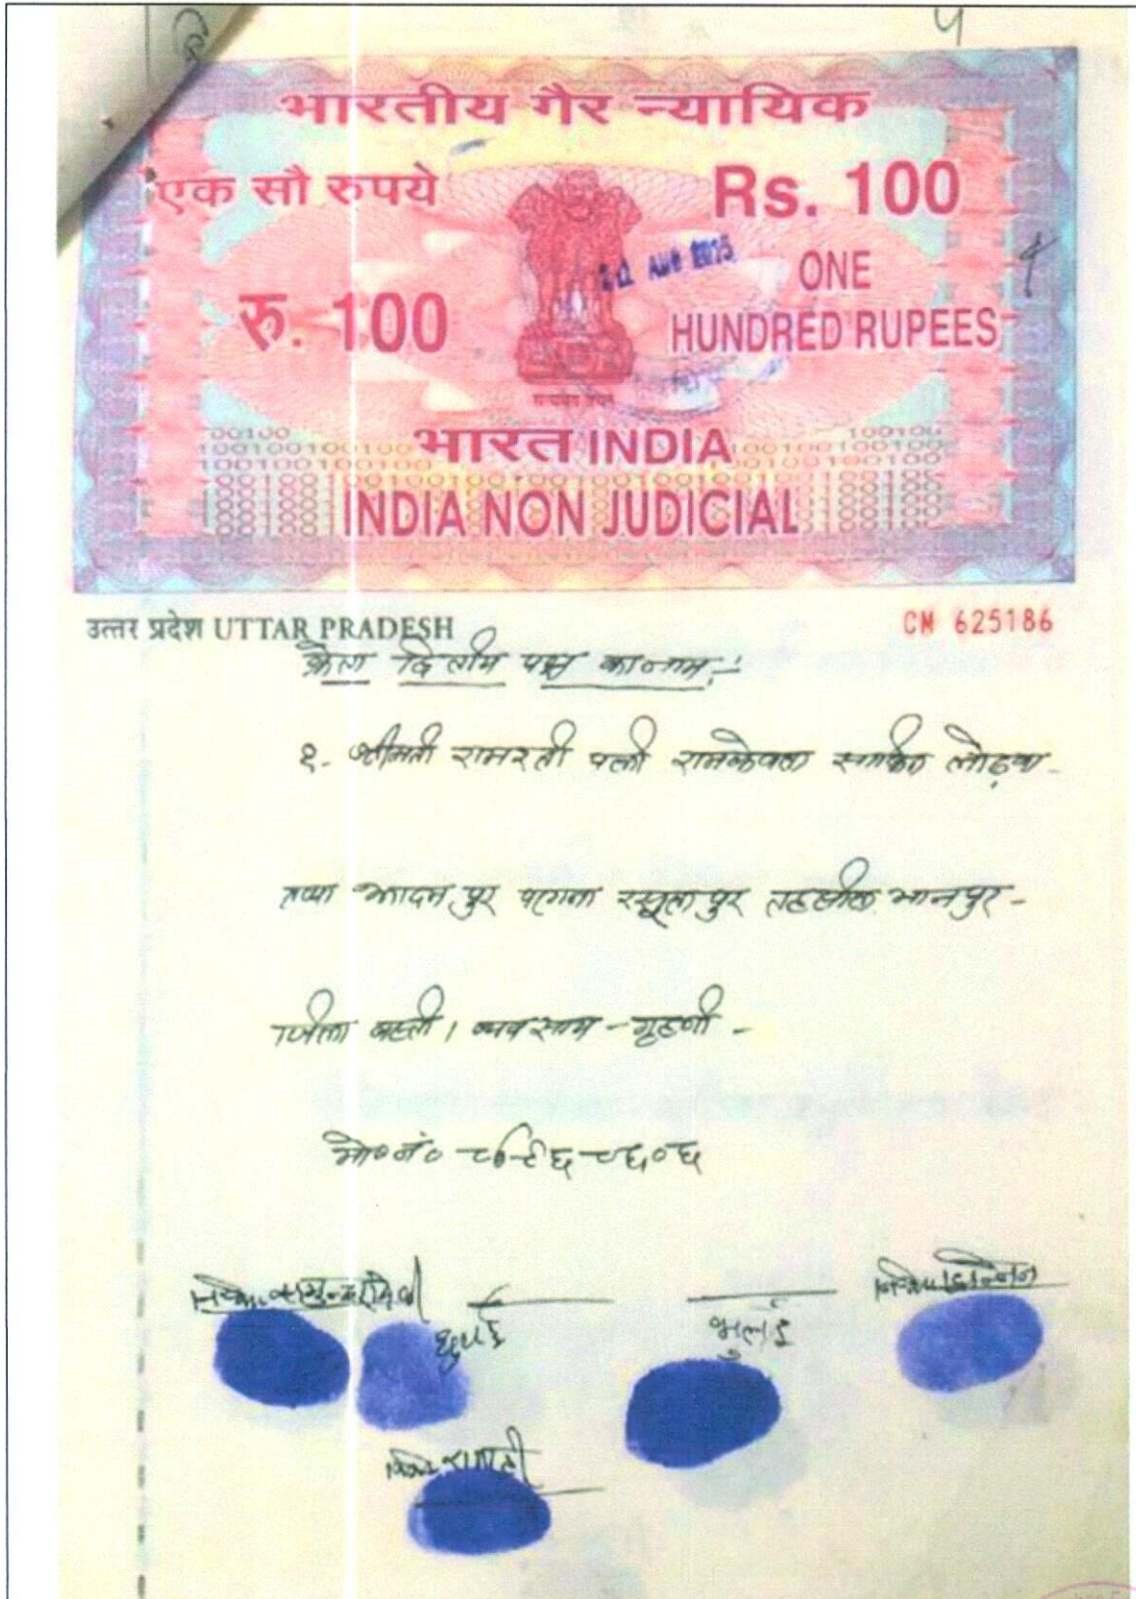 ५
भारतीय गैर न्यायिक
एक सौ रुपये
Rs. 100
रु. 100
ONE
HUNDRED RUPEES
AUG 2015
सत्यमेव जयते
भारत INDIA
INDIA NON JUDICIAL
उत्तर प्रदेश UTTAR PRADESH
CM 625186
क्रेता द्वितीय पक्ष का नाम :-
१- श्रीमती रामरती पत्नी रामकेवल साकिन लोढ़वा-
तप्पा पुर परगना रसूलपुर तहसील भानपुर-
जिला बस्ती। व्यवसाय - गृहणी -
मो०नं०
भुलई